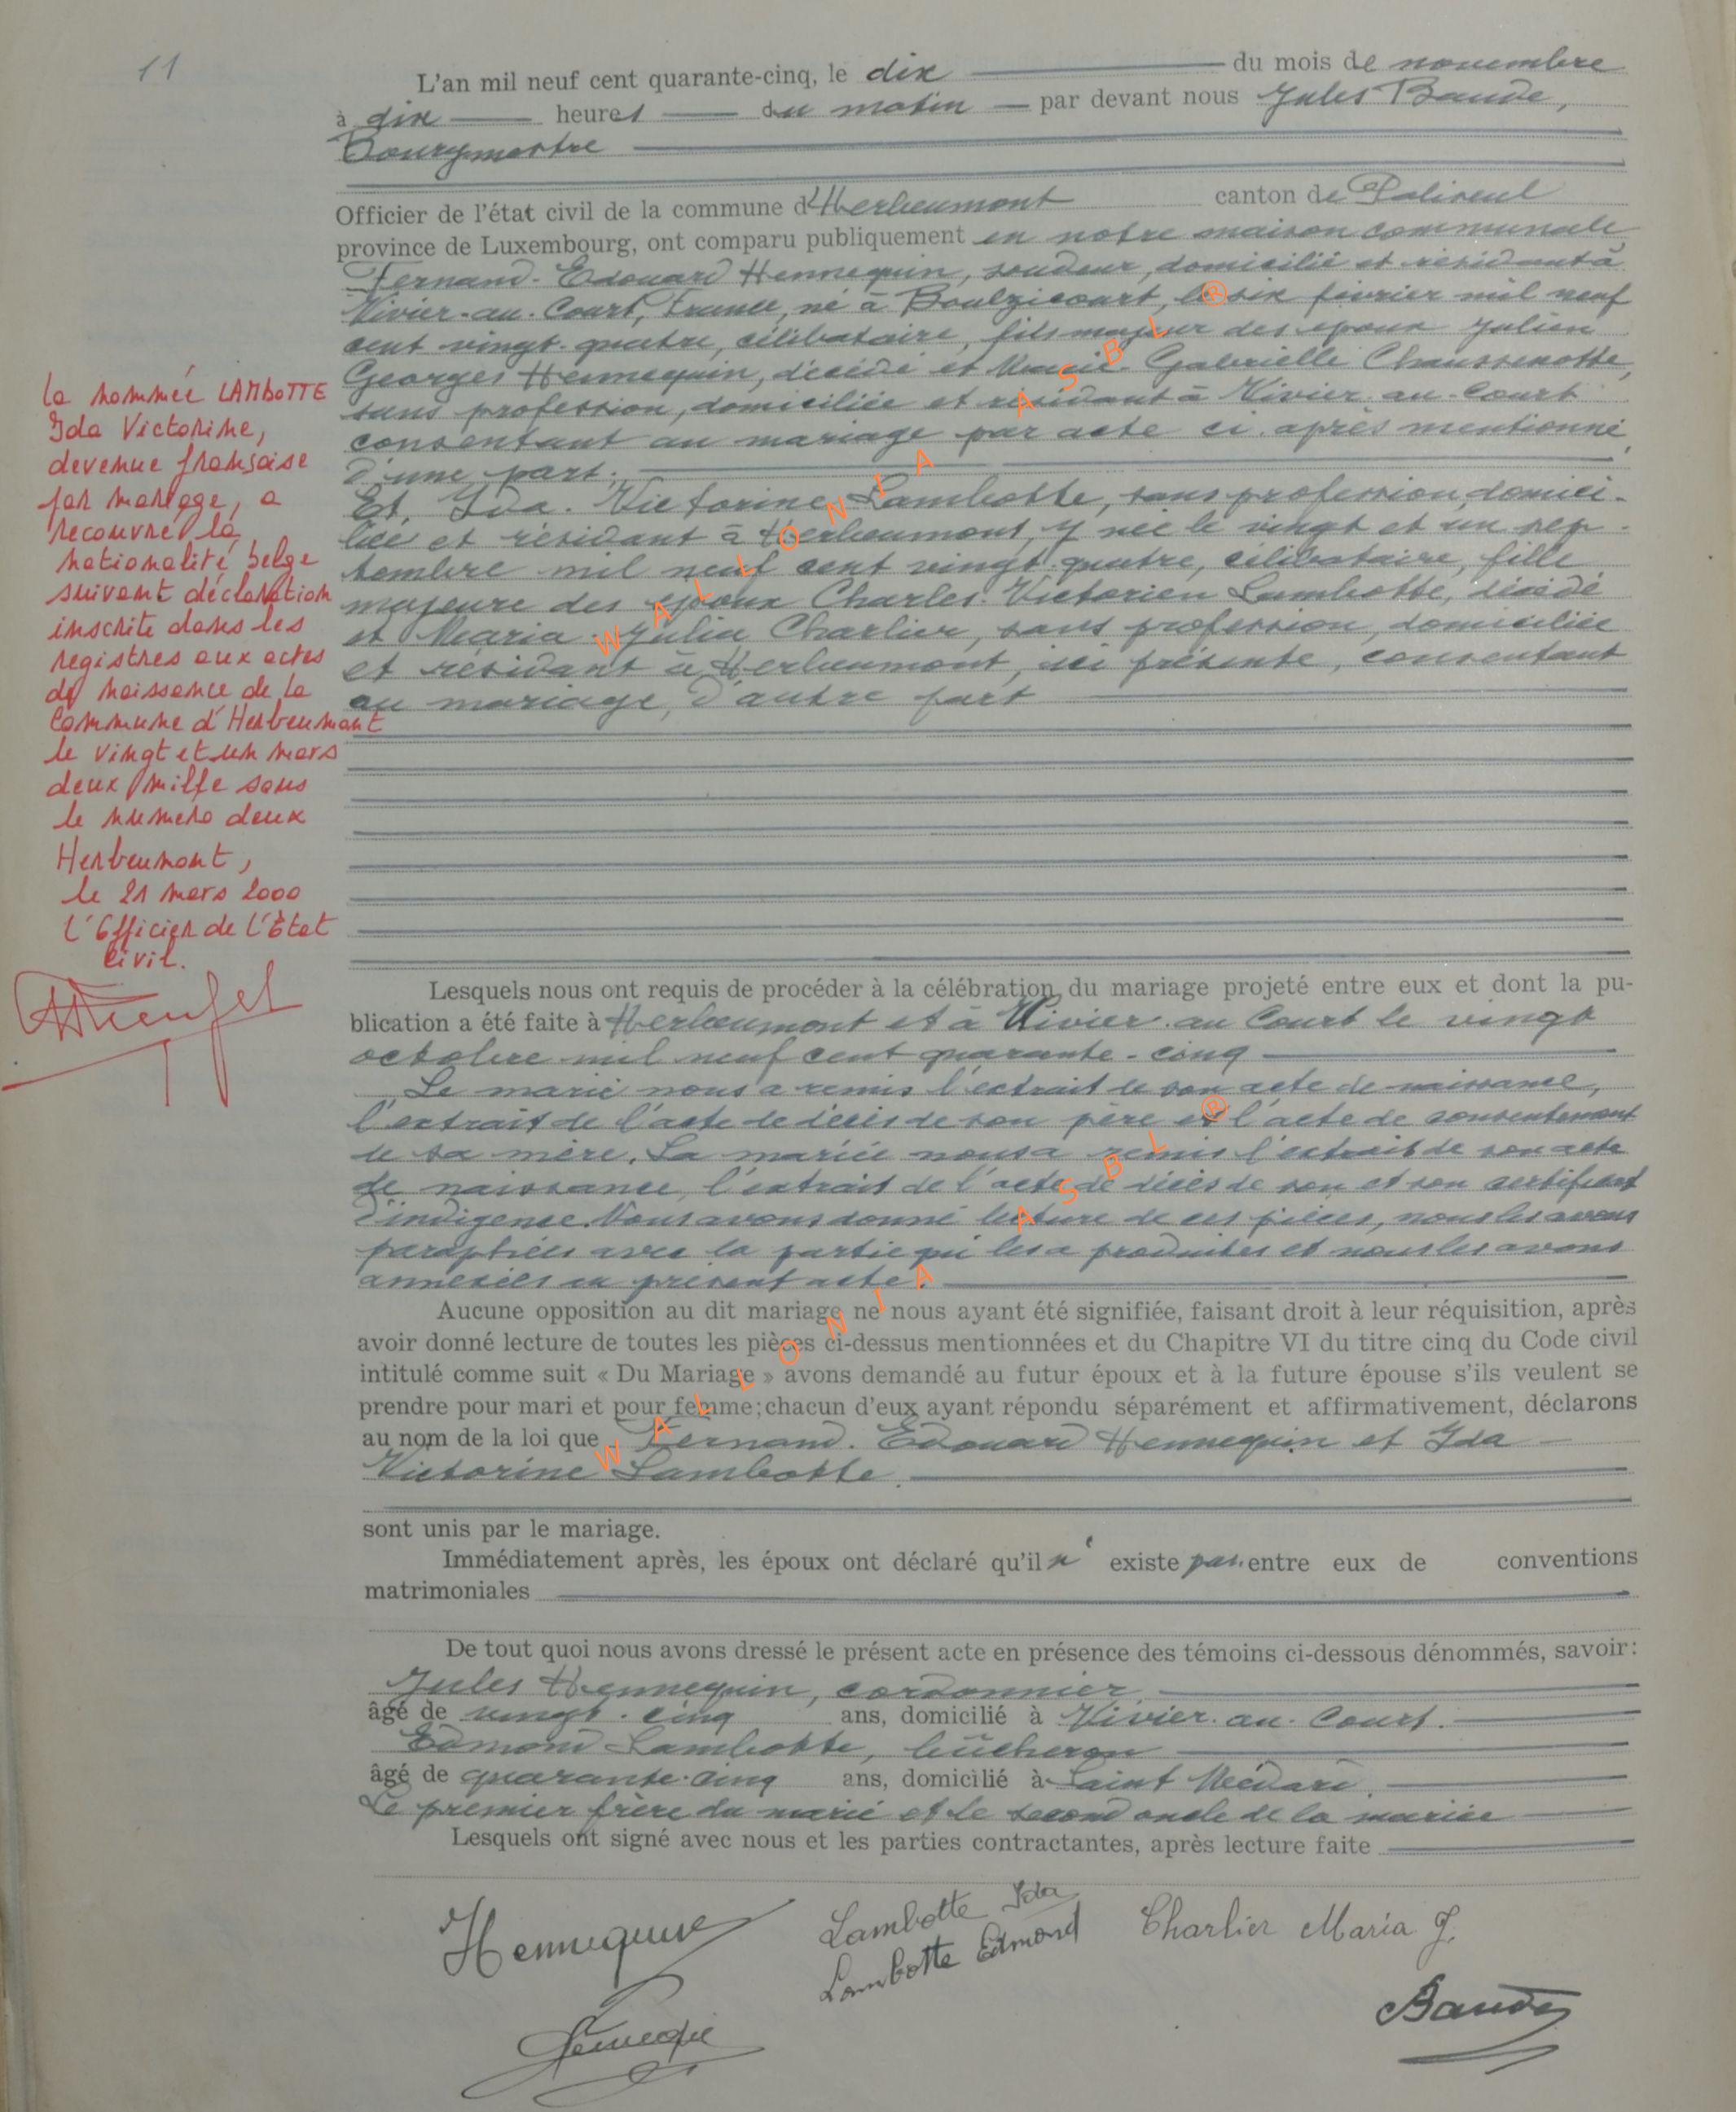 11
L'an mil neuf cent quarante-cinq, le dix du mois de novembre
à dix heures du matin par devant nous Jules Baude,
Bourgmestre
Officier de l'état civil de la commune d'Herbeumont canton de Paliseul
province de Luxembourg, ont comparu publiquement en notre maison communale
Fernand-Edouard Hennequin, soudeur, domicilié et résidant à
Vivier-au-Court, France, né à Boulzicourt, le six février mil neuf
cent vingt-quatre, célibataire, fils majeur des époux Julien
Georges Hennequin, décédé et Marie-Gabrielle Chaussenotte,
sans profession, domiciliée et résidant à Vivier-au-Court
consentant au mariage par acte ci-après mentionné,
d'une part.
Et, Ida-Victorine Lambotte, sans profession, domici-
liée et résidant à Herbeumont, y née le vingt et un sep-
tembre mil neuf cent vingt-quatre, célibataire, fille
majeure des époux Charles-Victorien Lambotte, décédé
et Maria-Julia Charlier, sans profession, domiciliée
et résidant à Herbeumont, ici présente, consentant
au mariage, d'autre part
La nommée LAMBOTTE
Ida Victorine,
devenue française
par mariage, a
recouvré la
nationalité belge
suivant déclaration
inscrite dans les
registres aux actes
de naissance de la
Commune d'Herbeumont
le vingt et un mars
deux mille sous
le numéro deux
Herbeumont,
le 21 mars 2000
L'Officier de l'Etat
Civil.
Lesquels nous ont requis de procéder à la célébration du mariage projeté entre eux et dont la pu-
blication a été faite à Herbeumont et à Vivier-au-Court le vingt
octobre mil neuf cent quarante-cinq
Le marié nous a remis l'extrait de son acte de naissance,
l'extrait de l'acte de décès de son père et l'acte de consentement
de sa mère. La mariée nous a remis l'extrait de son acte
de naissance, l'extrait de l'acte de décès de son et son certificat
d'indigence. Nous avons donné lecture de ces pièces, nous les avons
paraphées avec la partie qui les a produites et nous les avons
annexées au présent acte.
Aucune opposition au dit mariage ne nous ayant été signifiée, faisant droit à leur réquisition, après
avoir donné lecture de toutes les pièces ci-dessus mentionnées et du Chapitre VI du titre cinq du Code civil
intitulé comme suit « Du Mariage » avons demandé au futur époux et à la future épouse s'ils veulent se
prendre pour mari et pour femme; chacun d'eux ayant répondu séparément et affirmativement, déclarons
au nom de la loi que Fernand-Edouard Hennequin et Ida
Victorine Lambotte.
sont unis par le mariage.
Immédiatement après, les époux ont déclaré qu'il n' existe pas entre eux de conventions
matrimoniales
De tout quoi nous avons dressé le présent acte en présence des témoins ci-dessous dénommés, savoir:
Jules Hennequin, cordonnier
âgé de vingt-cinq ans, domicilié à Vivier-au-Court.
Edmond Lambotte, bûcheron
âgé de quarante-cinq ans, domicilié à Saint Médard.
Le premier frère du marié et le second oncle de la mariée
Lesquels ont signé avec nous et les parties contractantes, après lecture faite
Hennequin Lambotte Ida Charlier Maria J.
Lambotte Edmond
Baude
WALLONIA ASBL ®
WALLONIA ASBL ®